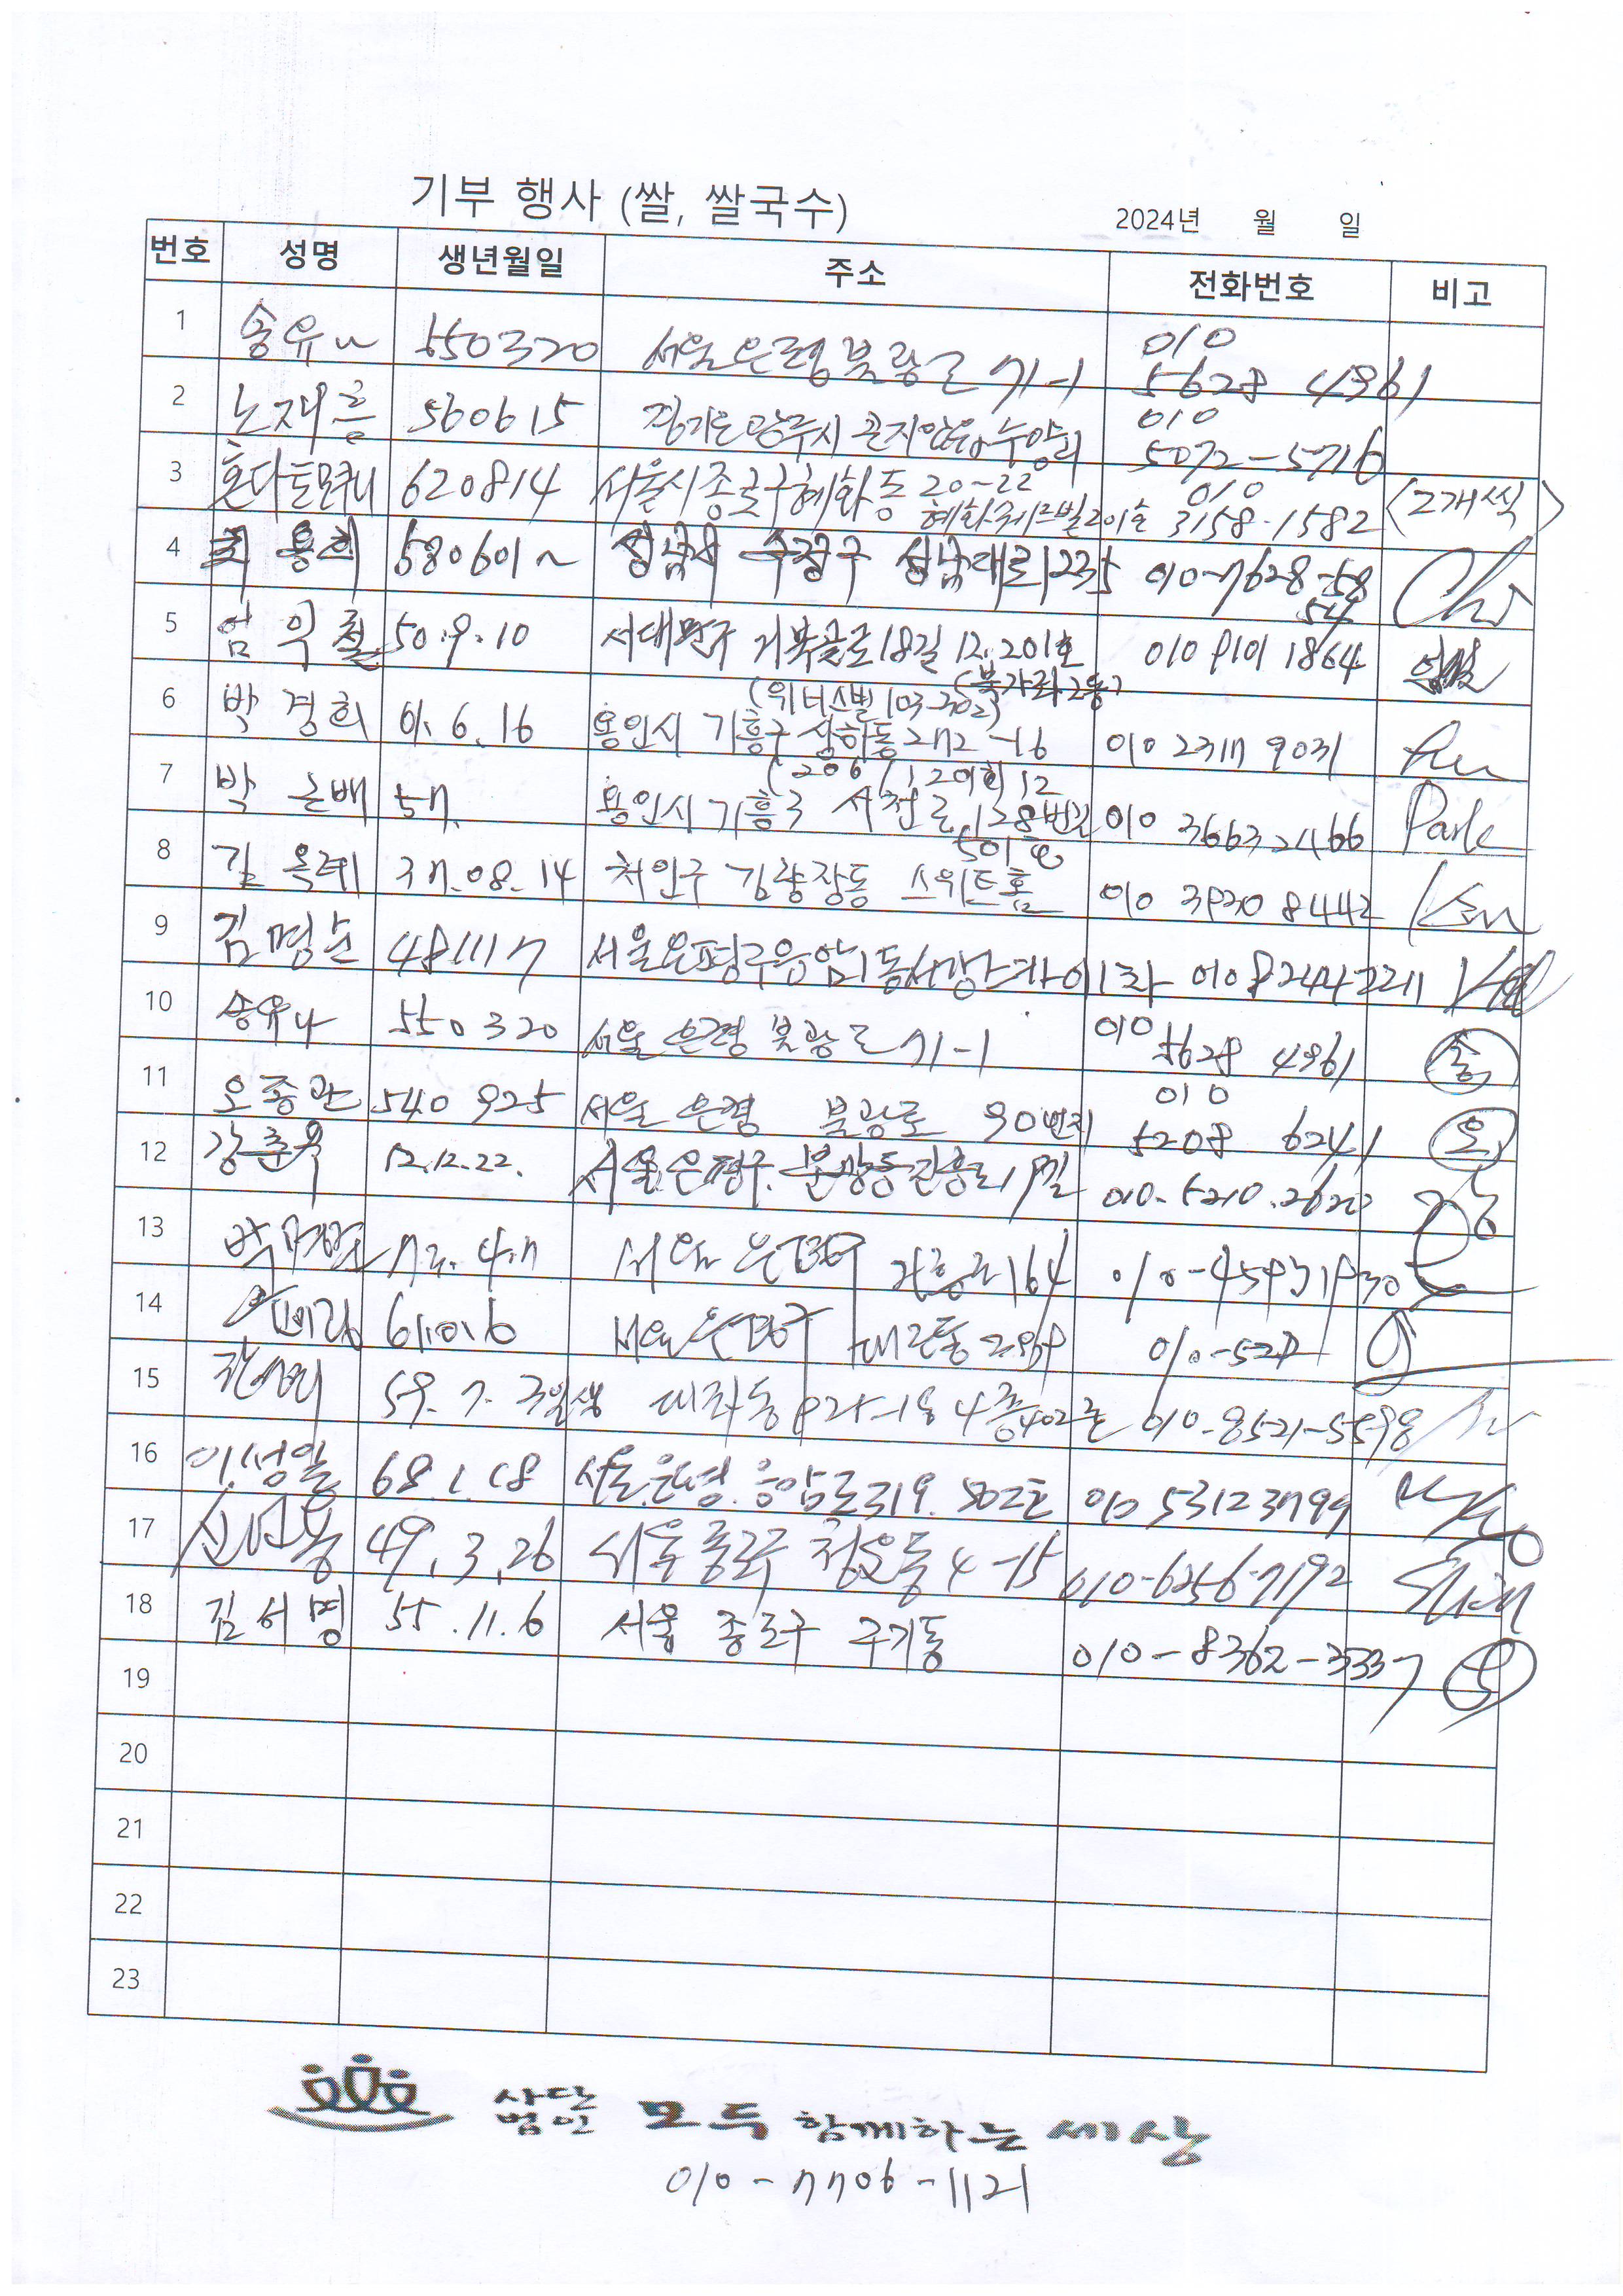 기부 행사 (쌀, 쌀국수)
2024년 월 일
번호 성명 생년월일 주소 전화번호 비고
1 송유나 550320 서울 은평 불광로 71-1 010 5628 4961
2 노재흥 560615 경기도 광주시 곤지암읍 수양리 010 5072-5716
3 혼다토모꾸니 620814 서울시 종로구 혜화동 20-22 010 3158-1582 (2개씩)
4 용희 580601~ 성남시 수정구 성남대로1235 010-7628-5854
5 엄익철 50.9.10 서대문구 거북골로18길 12. 201호 (북가좌2동) 010 9101 1864
6 박경희 61.6.16 용인시 기흥구 상하동 272-16 (위너스빌 103-302) 010 2317 9031
7 박는배 57. 용인시 기흥구 서천로 128번길 010 3663 2466 Park
8 길옥례 37.08.14 처인구 김량장동 스위트홈 501호 010 3930 8442 Kim
9 김명순 481117 서울 은평구 응암1동 010 8244 2211
10 송유나 550320 서울 은평 불광로 71-1 010 5628 4961 송
11 오종관 540925 서울 은평 불광로 90번지 010 5208 6241 오
12 강춘옥 52.12.22. 서울 은평구 불광동 진흥로 010-5210.2620 강
13 72.4.7 서울 은평구 진흥로164
14 서울 은평구 대조동 010-527
15 59.7.3일생 4층402호 010-8521-5598
16 이성일 68.1.18 서울.은평.응암로319.802호 010 5312 3799
17 49.3.26 서울 종로구 청운동 4-15 010-6256-7192
18 김서명 55.11.6 서울 종로구 구기동 010-8362-3337
19
20
21
22
23
사단법인 모두 함께하는 세상
010-7706-1121